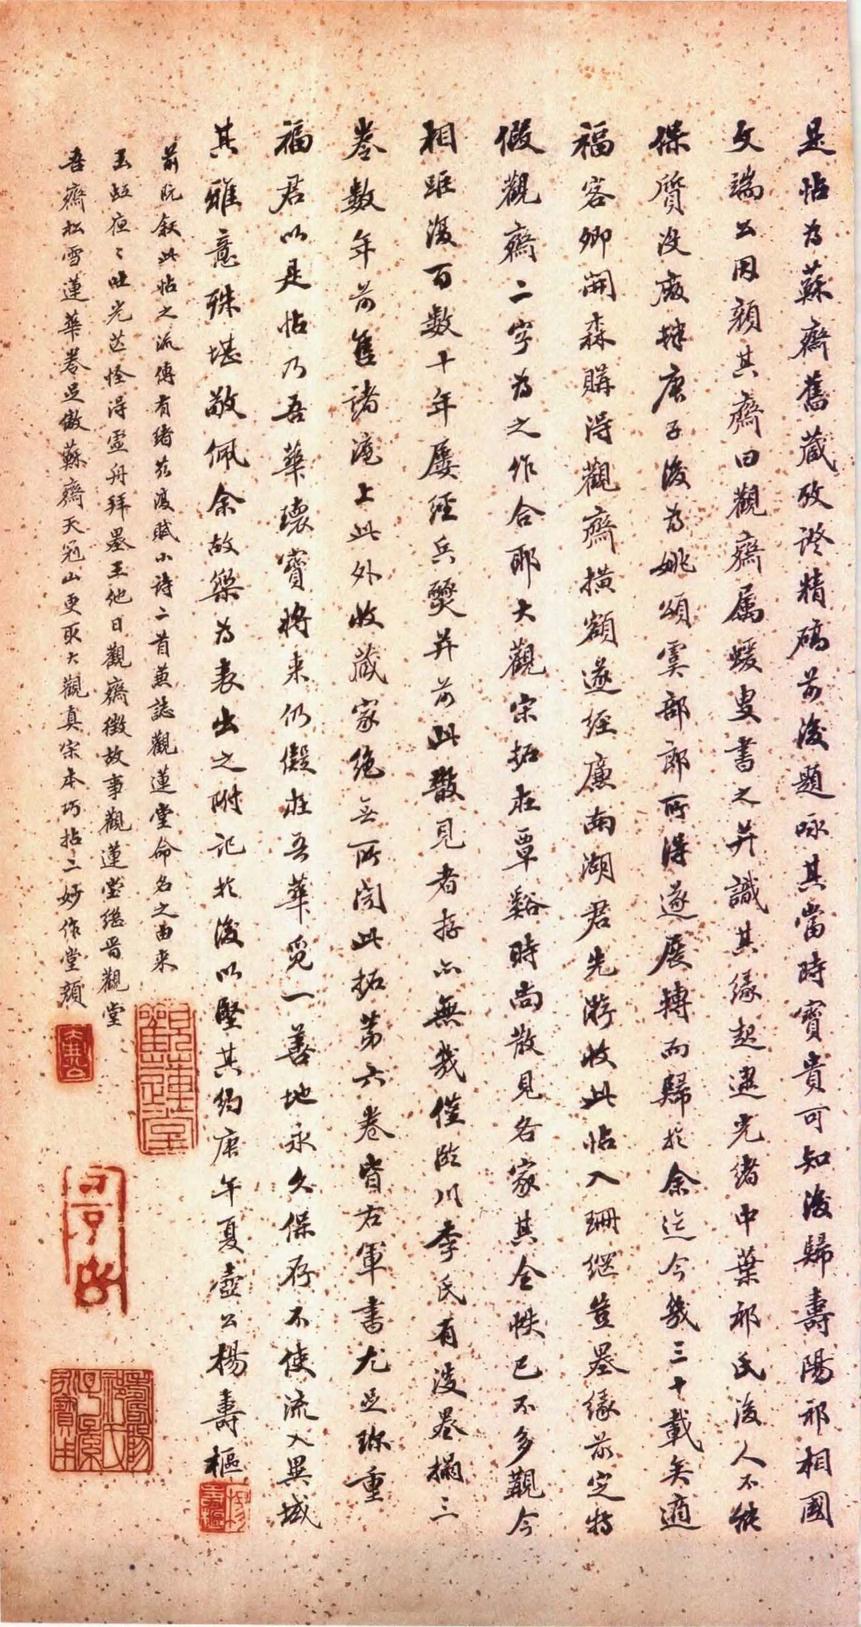 是帖為蘇齋舊藏攷證精碻前後題咏其當時寶貴可知後歸壽陽祁相國
文端公因顏其齋曰觀齋屬蝯叟書之并識其緣起逮光緒中葉祁氏後人不能
保質沒廠肆庚子後為姚頌虞部郎所得遂展轉而歸於余迄今幾三十載矣適
福客卿開森購得觀齋橫額遂經廉南湖君先游收此帖入珊繼豈墨緣前定特
假觀齋二字為之作合耶大觀宋拓在覃谿時尚散見各家其全帙已不多觀今
相距後百數十年屢經兵燹并前此散見者存亦無幾僅臨川李氏有淩墨搨三
卷數年前售諸滬上此外收藏家絕無所聞此拓第六卷皆右軍書尤足珍重
福君以是帖乃吾華瓌寶將來仍儗在吾華覓一善地永久保存不使流入異域
其雅意殊堪敬佩余故樂為表出之附記於後以堅其約庚午夏壺公楊壽樞
前既敘此帖之流傳有緒茲復賦小詩二首兼誌觀蓮堂命名之由來
玉虹夜夜吐光芒怪得虛舟拜墨王他日觀齋徵故事觀蓮堂繼晉觀堂
吾齋松雪蓮華卷足傲蘇齋天冠山更取大觀真宋本巧拈二妙作堂顏
觀蓮堂